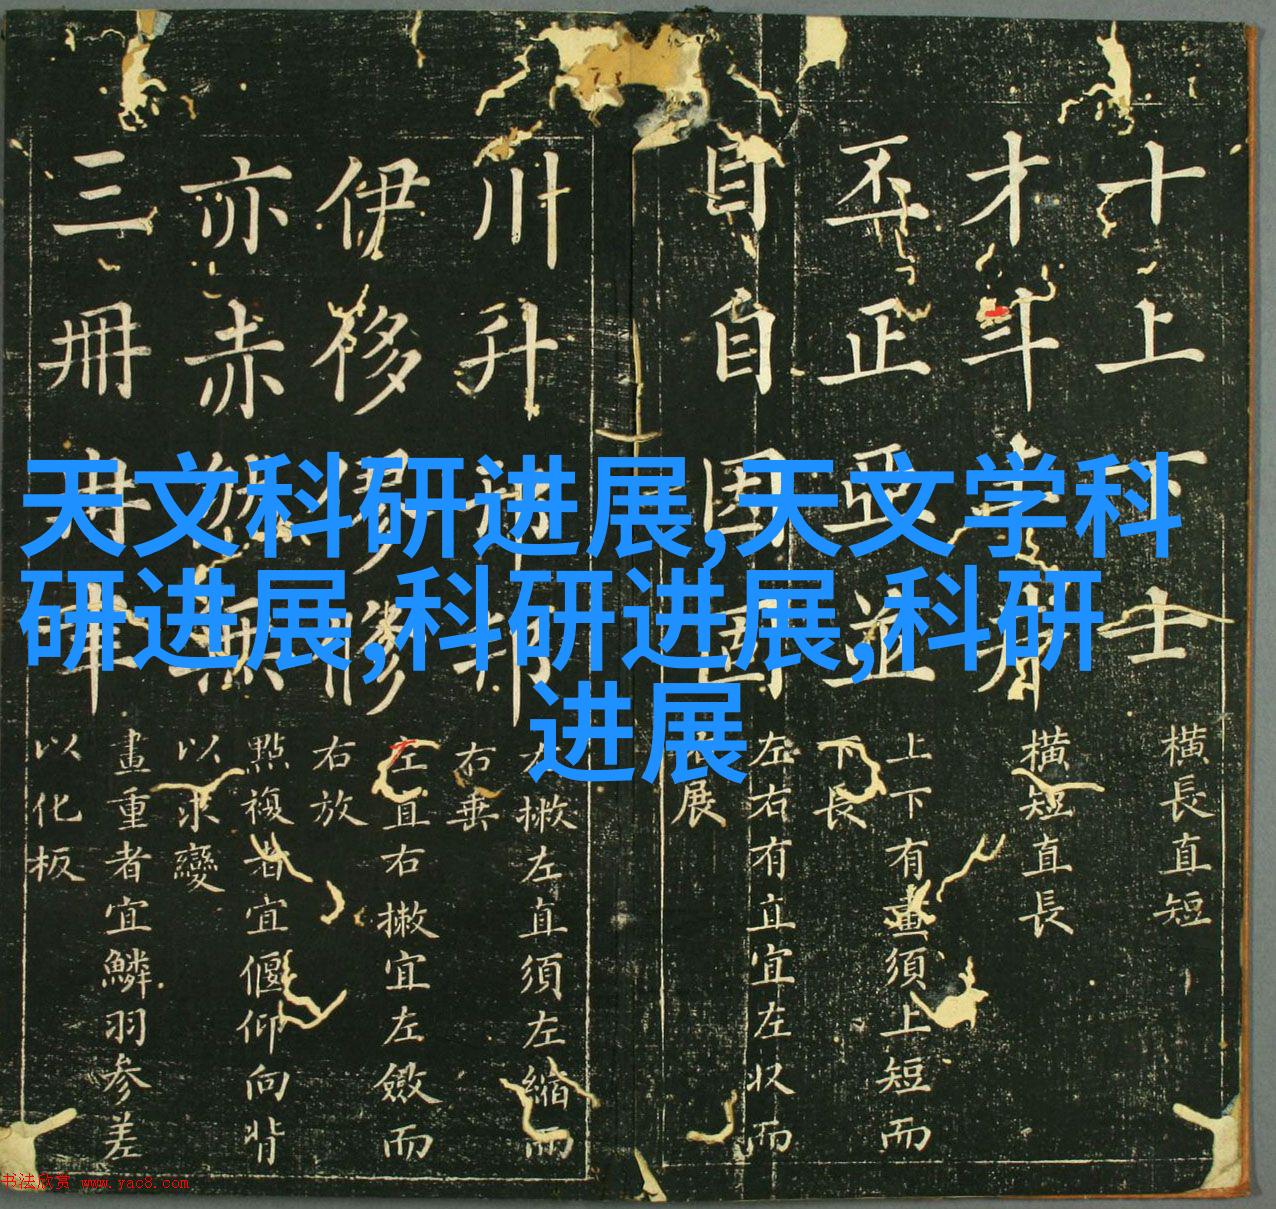 天文科研进展,天文学科
研进展,科研进展,科研
进展
十上下士
橫長直短
才斗
橫短直長
丕正亞並
上下有畫須上短而
下長
目自因
左右有直宜左收而
展
川升
撇左直須左縮而
右垂
伊侈
左直右撇宜左斂而
右放
亦赤無
點複者宜偃仰向背
以求變
三冊冉
畫重者宜鱗羽參差
以化板
书法欣赏 www.yac8.com